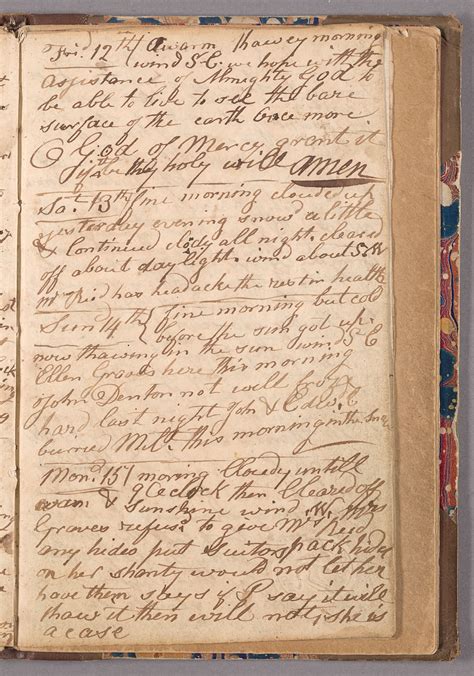 Frid. 12th a warm thawey morning
wind S E. we hope with the
assistance of Almighty God to
be able to live to see the bare
surface of the earth once more
O God of Mercy grant it
if it be thy holy will amen
Sat. 13th fine morning clouded up
yesterday evening snowd a little
& continued clody all night. cleared
off about daylight. wind about S W
Mrs Reid has headack the rest in health
Sund 14th fine morning but cold
before the sun got up.
now thawing in the sun wind S E
Ellen Graves here this morning
John Denton not well froze
hard last night John & Edwd. E
burried Milt. this morning in the Snow
Mond. 15 moring cloudy untill
9 Oclock then Cleared off
& Sunshine wind W. Mrs
Graves refusd. to give Mrs Reid
any hides put Suitors pack hides
on her shanty would not let her
have them says if I say it will
thaw it then will not, she is
a case